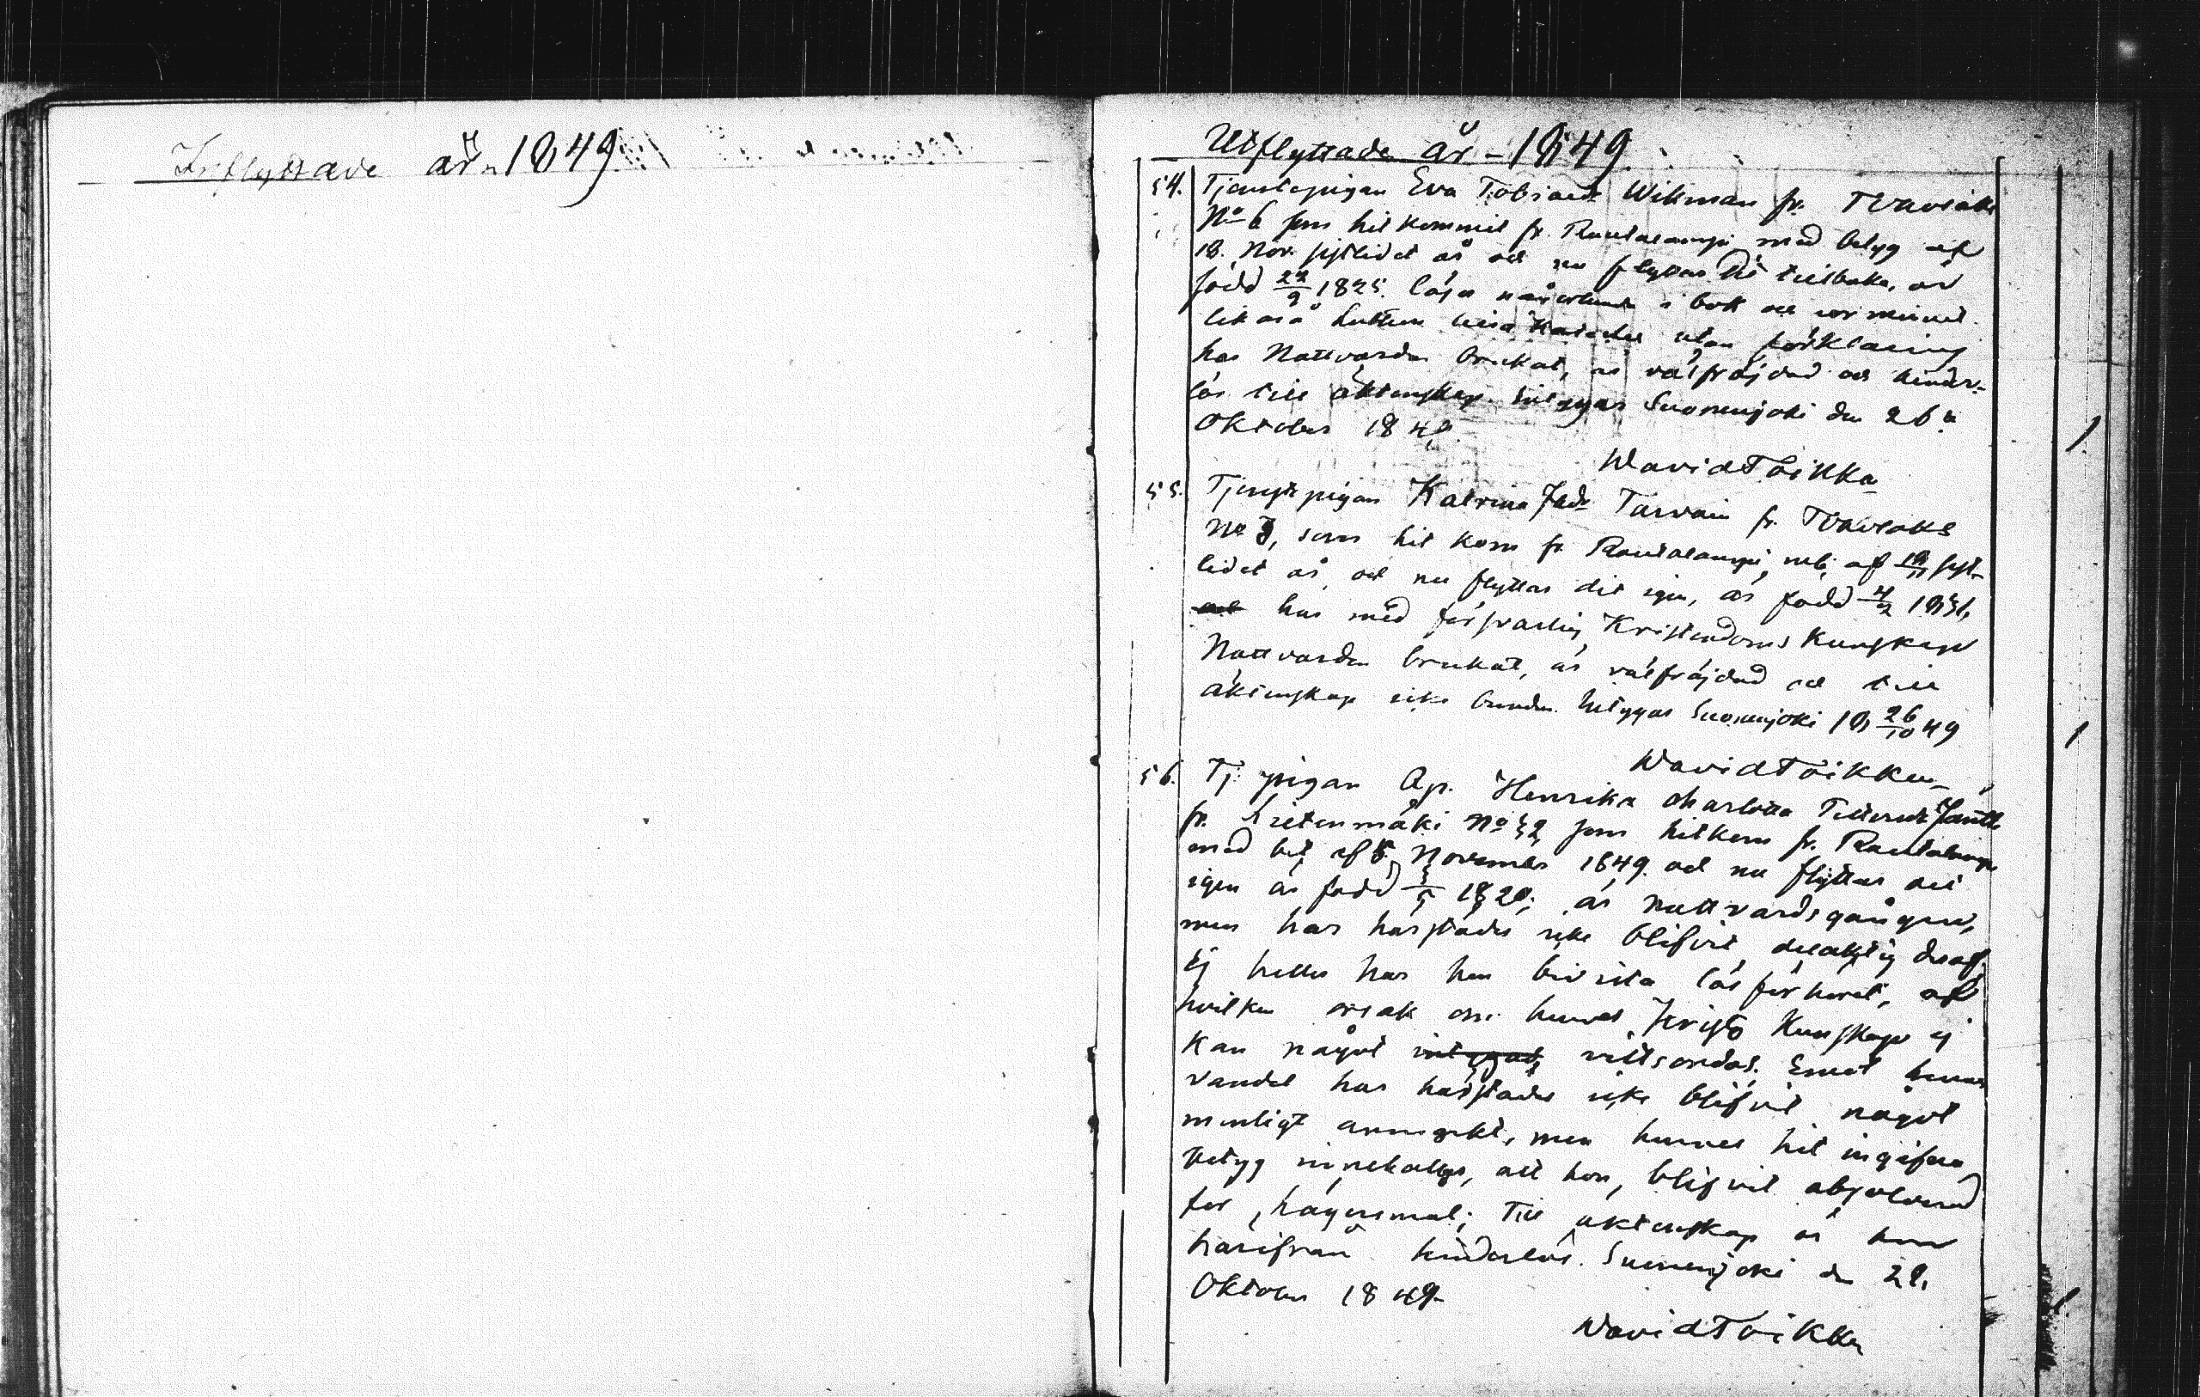 Inflyttade år 1849
Utflyttade år - 1849
54. Tjenstepigan Eva Tobiasdr Wikman fr.
No 6 som hit kommit fr. Rautalampi med betyg af
18. Nov. sistlidet år och nu flyttar dit tillbaka, är
född 22/9 1825. läser i bok och
likaså Luthers utan förklaring
har Nattvarden brukat, är välfräjdad och hinder-
lös till äktenskap. intygas Suonenjoki den 26.
Oktober 1849.
David Toikka
55. Tjenstepigan Katrina Tarvain fr.
No 7, som hit kom fr. Rautalampi, m. b. af sist-
lidet år, och nu flyttar dit igen, är född 4/2 1831,
har med försvarlig Kristendoms Kunskap
Nattvarden brukat, är välfräjdad och till
äktenskap icke bunden. Intygas Suonenjoki 18 26/10 49
David Toikka
56. Tj. pigan Ap. Henrika Charlotta
fr. Lietenmäki No 32 som hitkom fr. Rautalampi
med bet. af 5. November 1849. och nu flyttar dit
igen är född 1820; är nattvardsgången,
men har härstädes icke blifvit delaktig deraf.
Ej heller har hon bivista läsförhöret, af
hvilken orsak om hennes Kunskap ej
kan något intygas vittsordas. Emot hennes
vandel har härstädes icke blifvit något
menligt anmärkt, men hennes hit ingifna
betyg innehåller, att hon, blifvit absolverad
för lägersmål; Till äktenskap är hon
härifrån hinderlös. Suonenjoki den 29.
Oktober 1849.
David Toikka